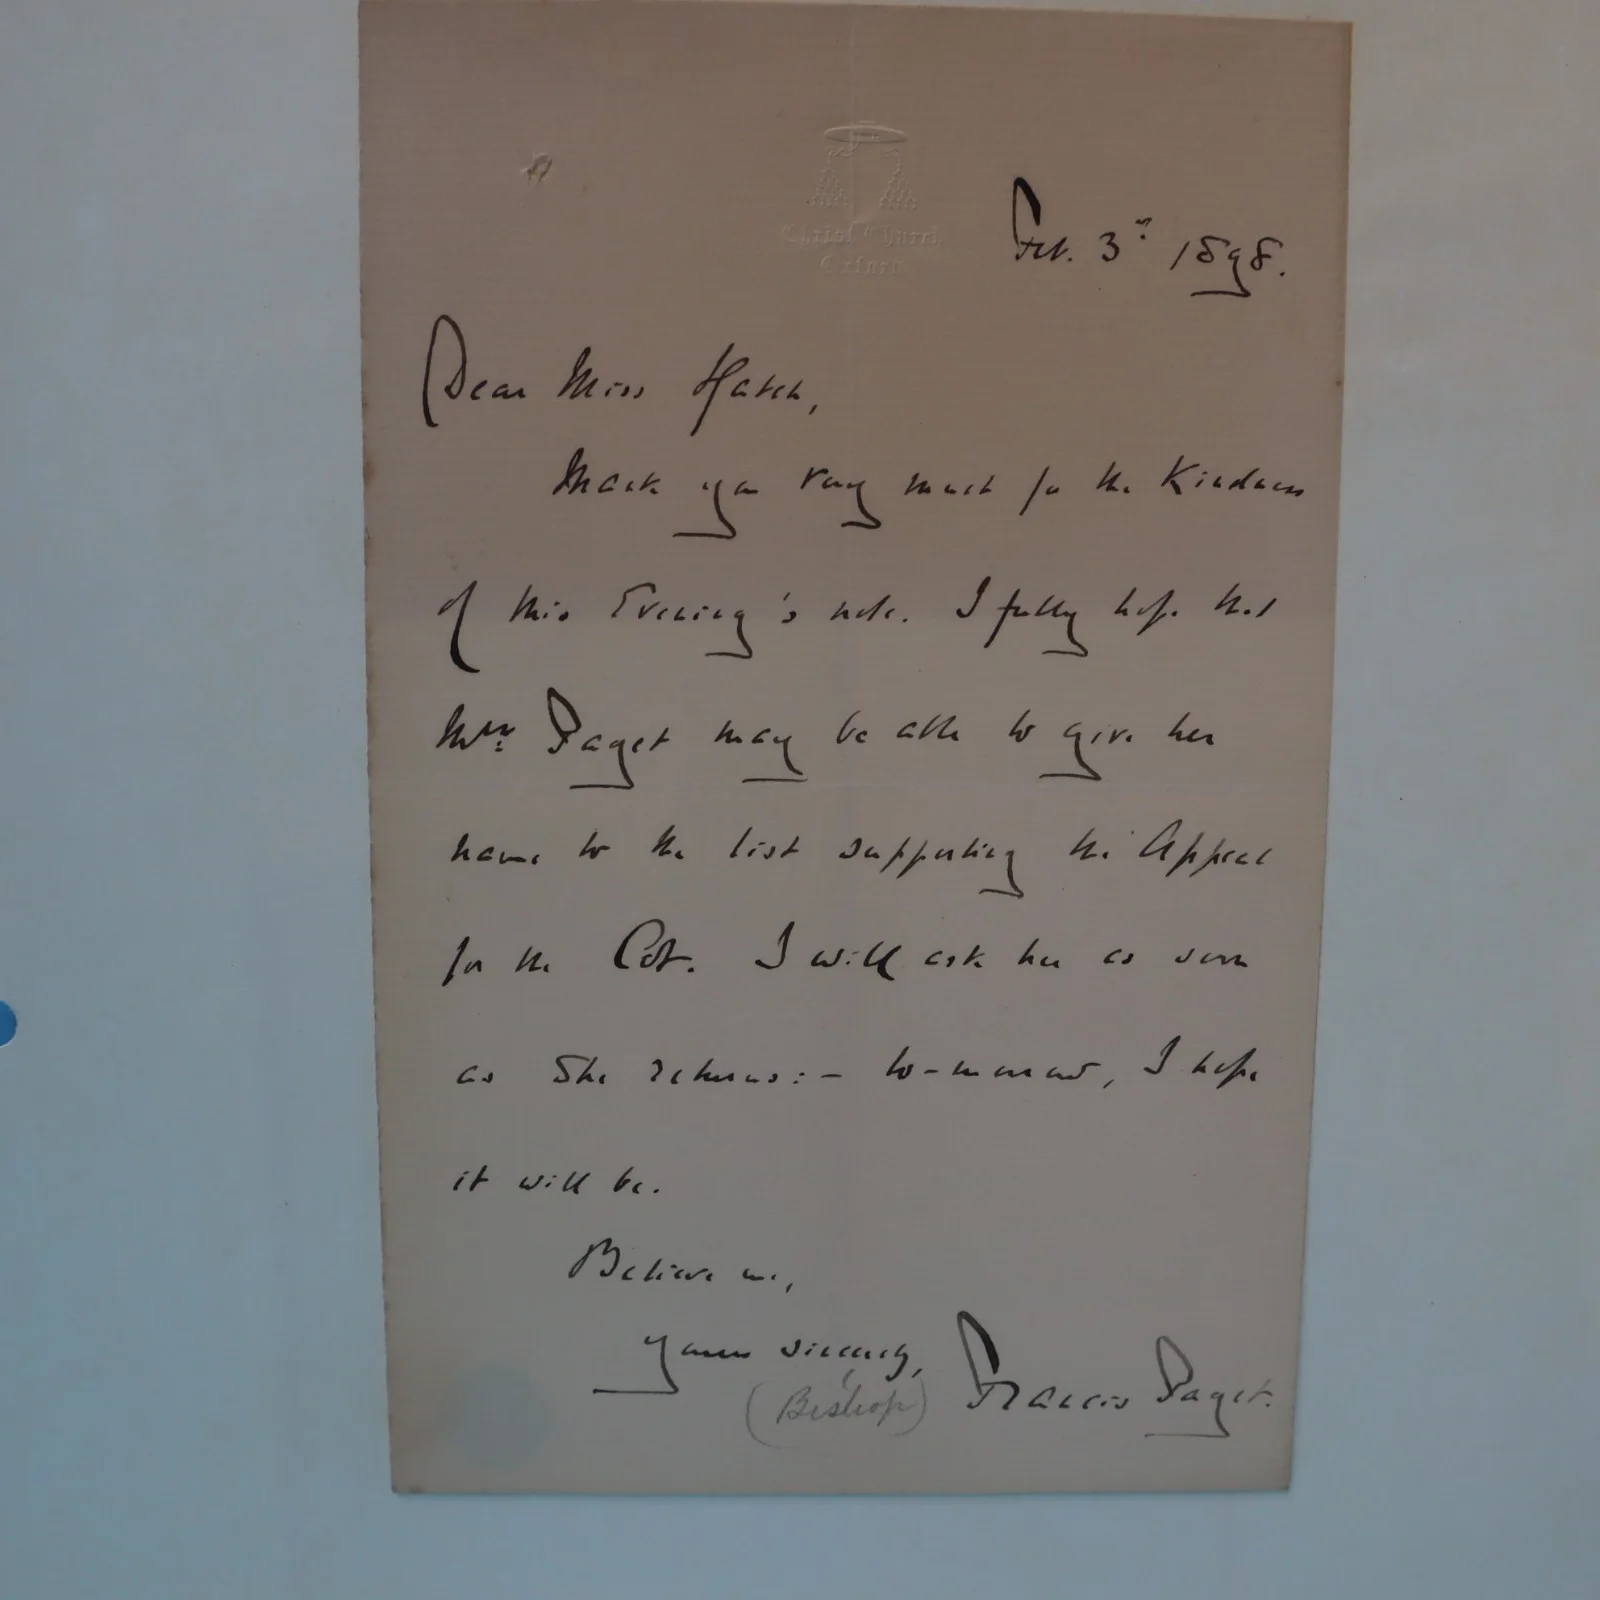 Christ Church
Oxford
Feb. 3rd 1898.
Dear Miss Hatch,
Thank you very much for the Kindness
of this Evening's note. I fully hope that
Mrs. Paget may be able to give her
name to the list supporting the Appeal
for the Cot. I will ask her as soon
as She returns:- to-morrow, I hope
it will be.
Believe me,
yours sincerely,
(Bishop) Francis Paget.